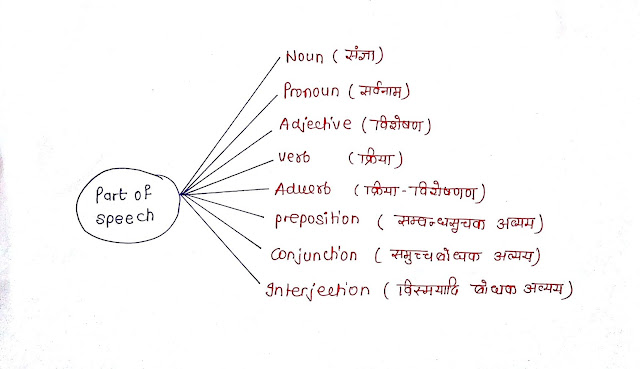 Noun (संज्ञा)
Pronoun (सर्वनाम)
Adjective (विशेषण)
verb (क्रिया)
Part of
speech
Adverb (क्रिया-विशेषणण)
preposition (सम्बन्धसुचक अव्यय)
Conjunction (समुच्चबोधक अव्यय)
Interjection (विस्मयादि बोधक अव्यय)